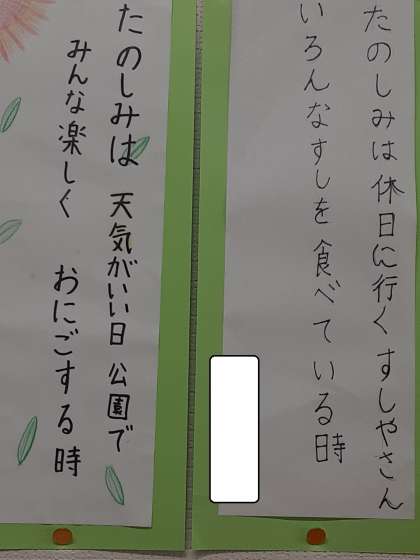 たのしみは休日に行くすしやさん
いろんなすしを食べている時
たのしみは 天気がいい日 公園で
みんな楽しく おにごする時